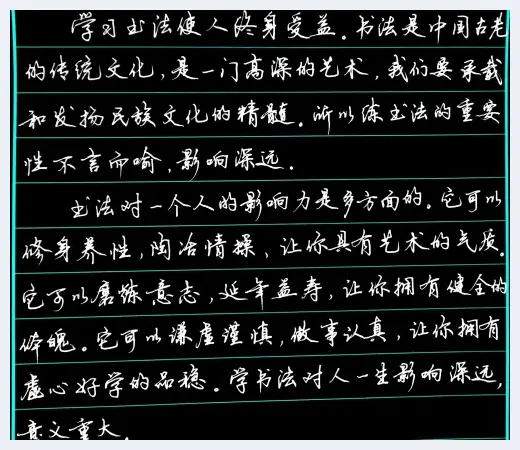 学习书法使人终身受益。书法是中国古老
的传统文化，是一门高深的艺术，我们要承载
和发扬民族文化的精髓。所以练书法的重要
性不言而喻，影响深远。
书法对一个人的影响力是多方面的。它可以
修身养性，陶冶情操，让你具有艺术的气质。
它可以磨炼意志，延年益寿，让你拥有健全的
体魄。它可以谦虚谨慎，做事认真，让你拥有
虚心好学的品德。学书法对人一生影响深远，
意义重大。